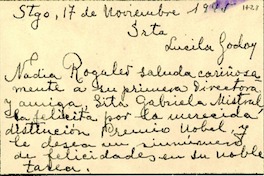 Stgo, 17 de Noviembre 1945
Srta
Lucila Godoy
Nadia Rogales saluda cariñosa
mente a su primera Directora
y amiga, Sita Gabriela Mistral,
la felicita por la merecida
distinción Premio Nobel, y
le desea un sinnúmero
de felicidades en su noble
tarea.